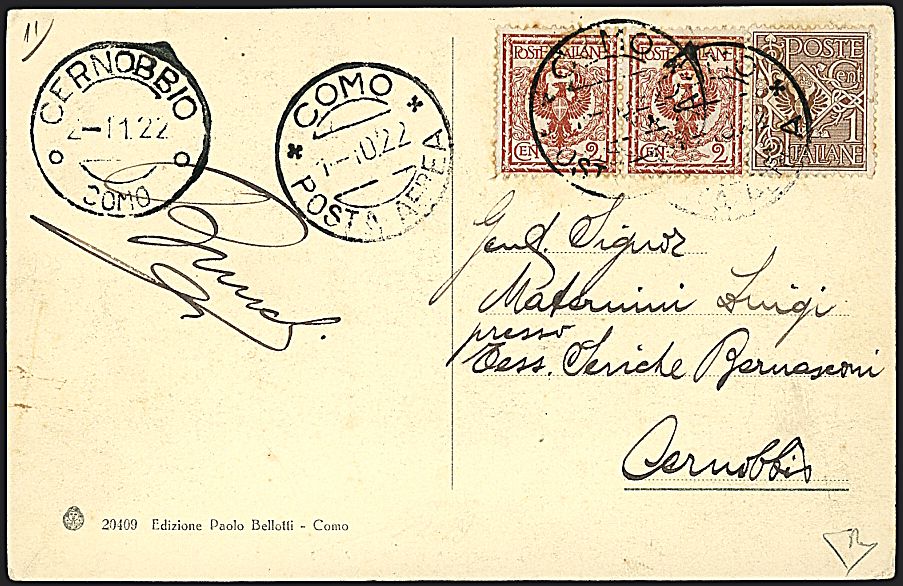 11
CERNOBBIO
2-11.22
COMO
COMO
1-10.22
POSTA AEREA
POSTE ITALIANE
CEN. 2
POSTE ITALIANE
CEN. 2
POSTE
Cent 1
ITALIANE
COMO
Gent. Signor
Maternini Luigi
presso
Tess. Seriche Bernasconi
Cernobbio
20409 Edizione Paolo Bellotti - Como